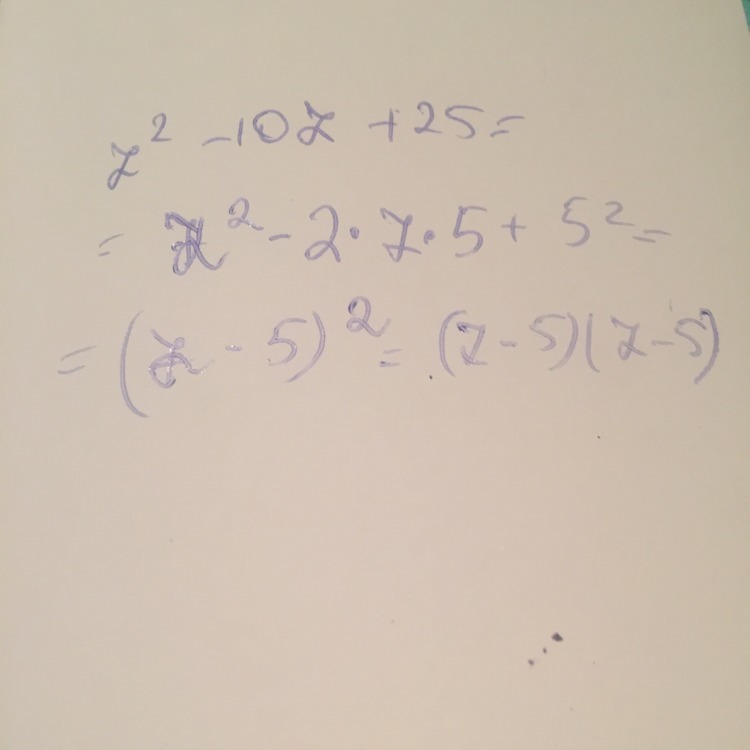 z² -10z +25=
= z² - 2·z·5 + 5² =
= (z - 5)² = (z - 5)(z - 5)